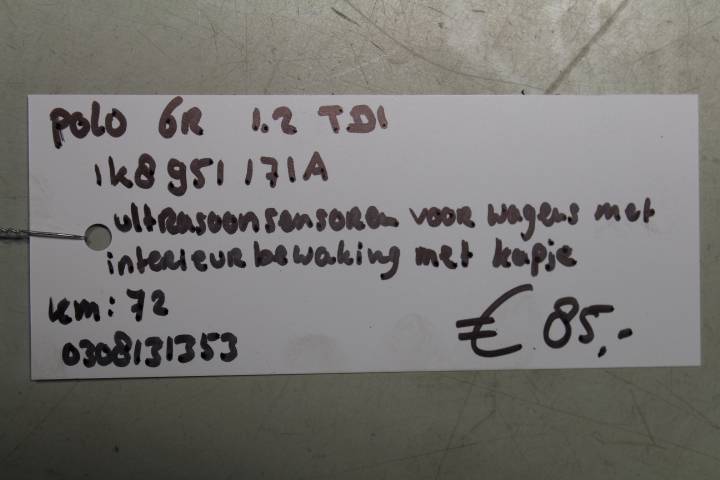 POLO 6R 1.2 TDI
1K8 951 171A
ultrasoonsensoren voor wagens met
interieurbewaking met kapje
km: 72
0308131353
€ 85,-